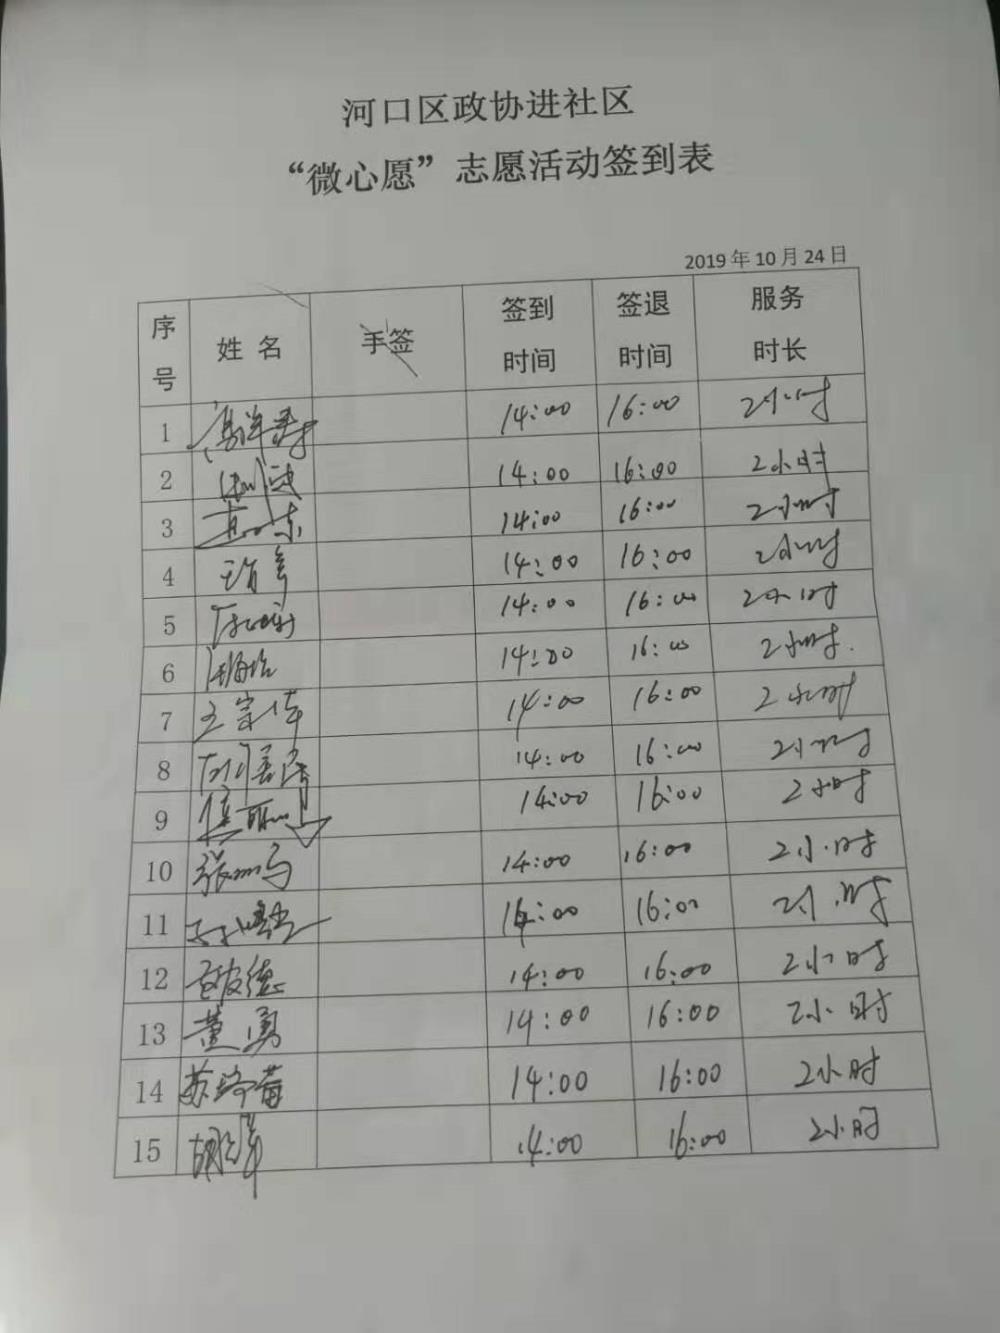 河口区政协进社区
“微心愿”志愿活动签到表
2019年10月24日
序号 姓名 手签 签到时间 签退时间 服务时长
1 14:00 16:00 2小时
2 14:00 16:00 2小时
3 14:00 16:00 2小时
4 14:00 16:00 2小时
5 14:00 16:00 2小时
6 14:00 16:00 2小时
7 王宗伟 14:00 16:00 2小时
8 14:00 16:00 2小时
9 14:00 16:00 2小时
10 14:00 16:00 2小时
11 14:00 16:00 2小时
12 14:00 16:00 2小时
13 董勇 14:00 16:00 2小时
14 14:00 16:00 2小时
15 14:00 16:00 2小时